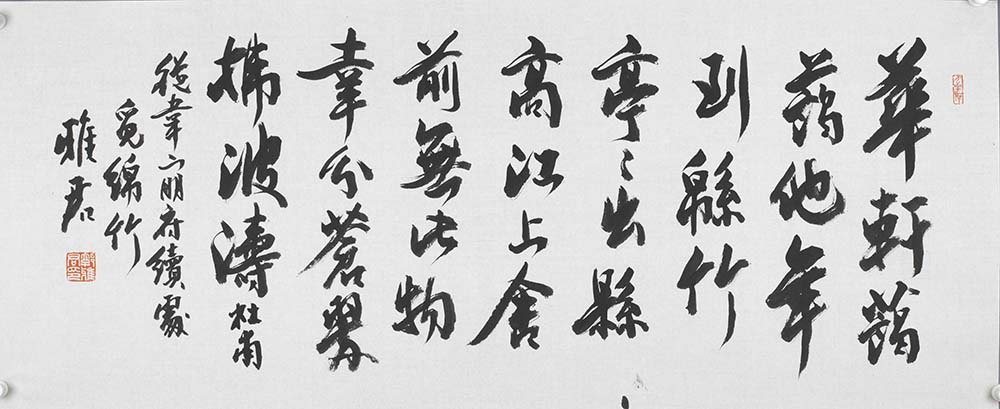 華軒藹
藹他年
到緜竹
亭〻出縣
高江上舍
前無此物
幸分蒼翠
拂波濤杜甫
從韋二明府續處
覓綿竹
雅君